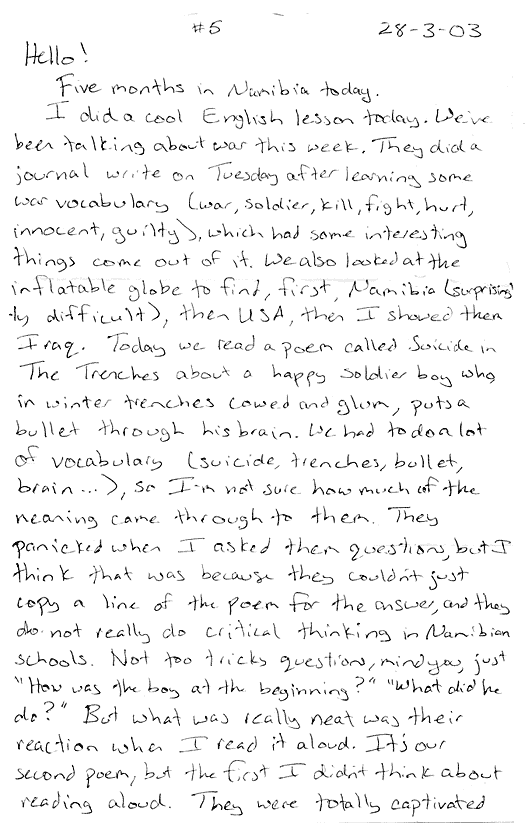 #5 28-3-03
Hello!
Five months in Namibia today.
I did a cool English lesson today. We've
been talking about war this week. They did a
journal write on Tuesday after learning some
war vocabulary (war, soldier, kill, fight, hurt,
innocent, guilty), which had some interesting
things come out of it. We also looked at the
inflatable globe to find, first, Namibia (surprising-
ly difficult), then USA, then I showed them
Iraq. Today we read a poem called Suicide in
The Trenches about a happy soldier boy who,
in winter trenches cowed and glum, puts a
bullet through his brain. We had to do a lot
of vocabulary (suicide, trenches, bullet,
brain...), so I'm not sure how much of the
meaning came through to them. They
panicked when I asked them questions, but I
think that was because they couldn't just
copy a line of the poem for the answer, and they
do not really do critical thinking in Namibian
schools. Not too tricks questions, mind you, just
"How was the boy at the beginning?" "What did he
do?" But what was really neat was their
reaction when I read it aloud. It's our
second poem, but the first I didn't think about
reading aloud. They were totally captivated